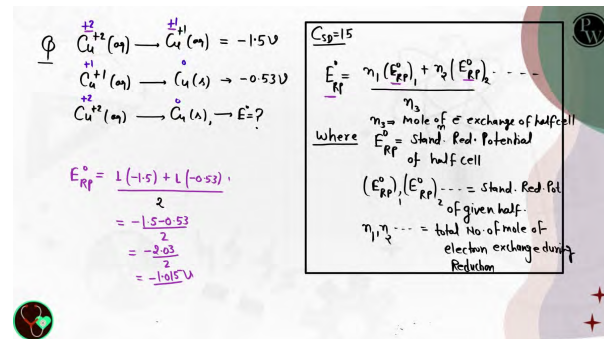 Q Cu⁺²(aq) ⟶ Cu⁺¹(aq) = -1.5V
+2 +1
Cu⁺¹(aq) ⟶ Cu(s) → -0.53V
+1 0
Cu⁺²(aq) ⟶ Cu(s), → E°=?
+2 0
E°RP = 1(-1.5) + 1(-0.53)
2
= -1.5-0.53
2
= -2.03
2
= -1.015V
CSD=15
E°RP = n₁(E°RP)₁ + n₂(E°RP)₂ -----
n₃
n₃ = Mole of e⁻ exchange of half cell
where E°RP = Stand. Red. Potential
of half cell
(E°RP)₁,(E°RP)₂ ---- = Stand. Red. Pot
of given half.
n₁,n₂ ---- = total No. of mole of
electron exchange during
Reduction
PW